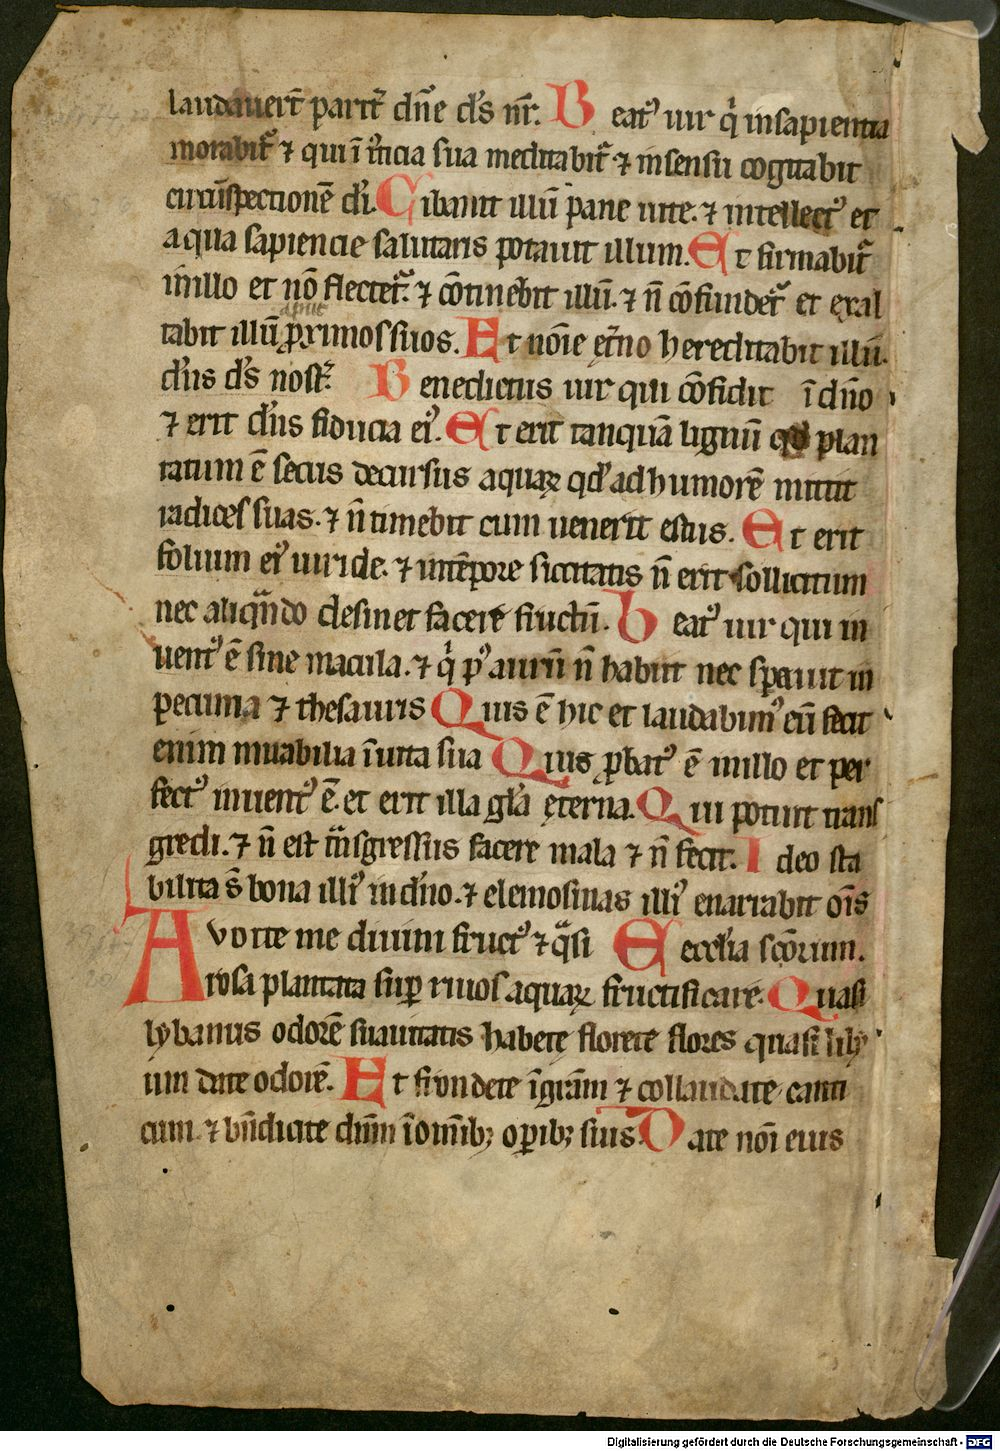 laudauert̄ parit̄ dn̄e ds̄ nr̄. Beatꝰ uir q̇ insapientia
morabit᷑ ⁊ qui ī iⷭ̄ticia sua meditabit᷑ ⁊ in sensu cogitabit
circūspectionē di̅. Cibauit illū pane uite. ⁊ intellectꝰ et
aqua sapiencie salutaris potauit illum. Et firmabit᷑
inillo et nō flectet᷑. ⁊ cōtinebit illū. ⁊ n̄ cōfundet᷑ et exal
tabit illū apuᵗ ꝓximos suos. Et noīe ęt̄no hereditabit illū.
dn̄s ds̄ nost̄. Benedictus uir qui cōfidit ī dn̄o
⁊ erit dn̄s fiducia eiꝰ. Et erit tanquā lignū qd̄ plan
tatum ē secus decursus aquaꝝ qd̄ ad humorē mittit
radices suas. ⁊ n̄ timebit cum uenerit estus. Et erit
folium eiꝰ uiride. ⁊ intēpore siccitatis n̄ erit sollicitum
nec aliqᷓndo desinet facere fructū. beatꝰ uir qui in
uentꝰ ē sine macula. ⁊ q̇ pꝰ aurū n̄ habiit nec sꝑauit in
pecunia ⁊ thesauris Quis ē hic et laudabimꝰ eū fecit
enim mirabilia īuita sua Quis ꝓbatꝰ ē inillo et per
fectꝰ inuentꝰ ē. et erit illa gl̄a ęterna. Qui potuit trans
gredi. ⁊ n̄ est tᷓnsgressus facere mala ⁊ n̄ fecit. Ideo sta
bilita s̄ bona illiꝰ in dn̄o. ⁊ elemosinas illiꝰ enarrabit oīs
Auorte me diuini fructꝰ ⁊ qᷓsi Eecclia sc̄orum.
rosa plantata suꝑ riuos aquaꝝ fructificare. Quasi
lybanus odorē suauitatis habete florete flores quasi lily
um date odorē. Et frondete īgrām ⁊ collaudate canti
cum ⁊ bn̄dicite dnm̄ īomībꝫ oꝑibꝫ suis. Date noī eius
Digitalisierung gefördert durch die Deutsche Forschungsgemeinschaft - DFG